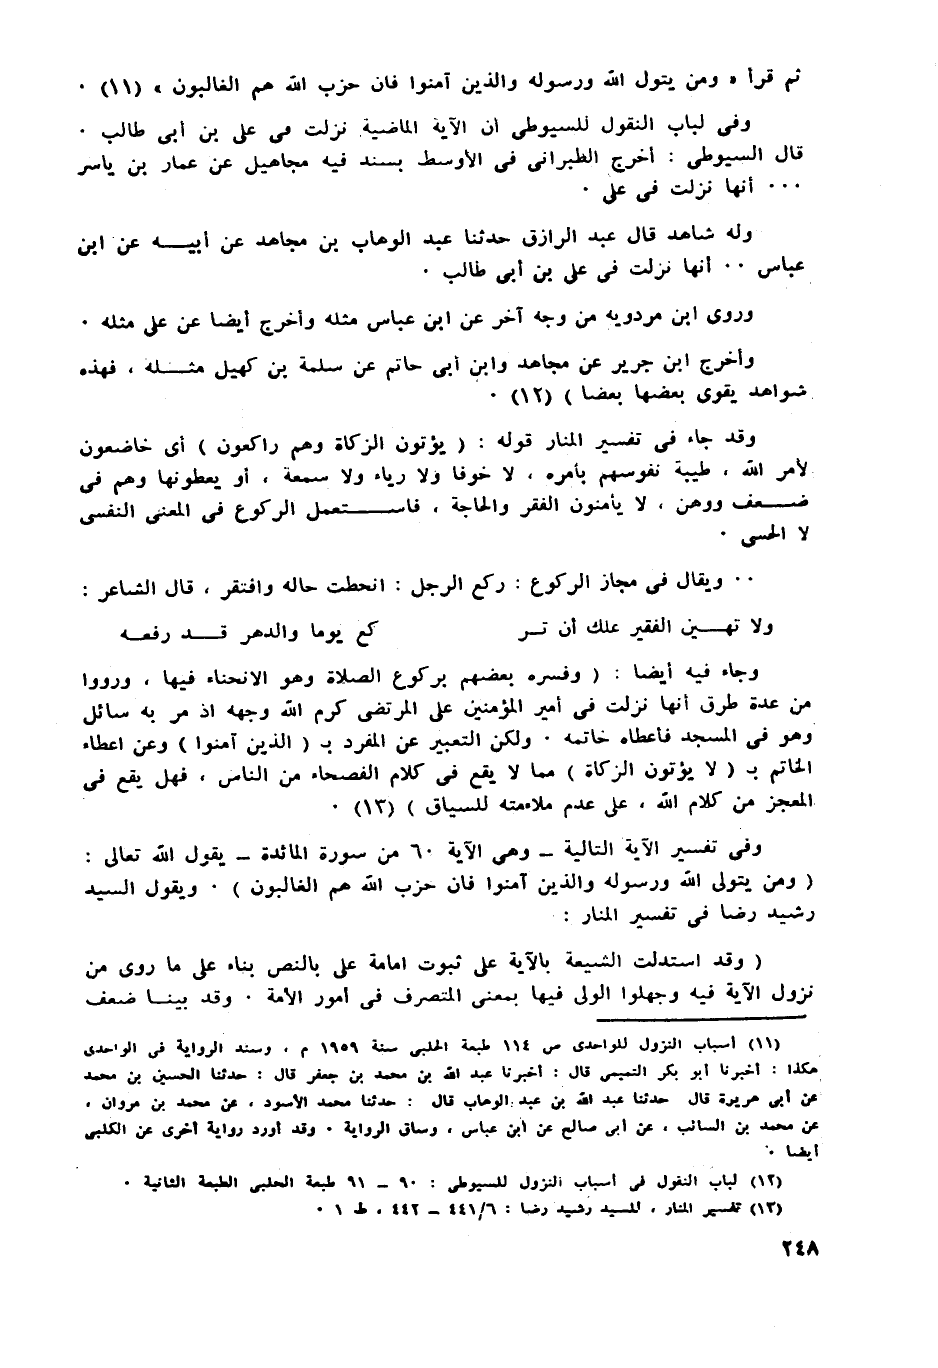 ثم قرأ « ومن يتول الله ورسوله والذين آمنوا فان حزب الله هم الغالبون » (١١) ·
وفى لباب النقول للسيوطى أن الآية الماضية نزلت فى على بن أبى طالب ·
قال السيوطى : أخرج الطبرانى فى الأوسط بسند فيه مجاهيل عن عمار بن ياسر
··· أنها نزلت فى على ·
وله شاهد قال عبد الرازق حدثنا عبد الوهاب بن مجاهد عن أبيه عن ابن
عباس ·· أنها نزلت فى على بن أبى طالب ·
وروى ابن مردويه من وجه آخر عن ابن عباس مثله وأخرج أيضا عن على مثله ·
وأخرج ابن جرير عن مجاهد وابن أبى حاتم عن سلمة بن كهيل مثله ، فهذه
شواهد يقوى بعضها بعضا ) (١٢) ·
وقد جاء فى تفسير المنار قوله : ( يؤتون الزكاة وهم راكعون ) أى خاضعون
لأمر الله ، طيبة نفوسهم بأمره ، لا خوفا ولا رياء ولا سمعة ، أو يعطونها وهم فى
ضعف ووهن ، لا يأمنون الفقر والحاجة ، فاستعمل الركوع فى المعنى النفسى
لا الحسى ·
·· ويقال فى مجاز الركوع : ركع الرجل : انحطت حاله وافتقر ، قال الشاعر :
ولا تهين الفقير علك أن تر كع يوما والدهر قد رفعه
وجاء فيه أيضا : ( وفسره بعضهم بركوع الصلاة وهو الانحناء فيها ، ورووا
من عدة طرق أنها نزلت فى أمير المؤمنين على المرتضى كرم الله وجهه اذ مر به سائل
وهو فى المسجد فأعطاه خاتمه · ولكن التعبير عن المفرد بـ ( الذين آمنوا ) وعن اعطاء
الخاتم بـ ( لا يؤتون الزكاة ) مما لا يقع فى كلام الفصحاء من الناس ، فهل يقع فى
المعجز من كلام الله ، على عدم ملاءمته للسياق ) (١٣) ·
وفى تفسير الآية التالية ـ وهى الآية ٦٠ من سورة المائدة ـ يقول الله تعالى :
( ومن يتولى الله ورسوله والذين آمنوا فان حزب الله هم الغالبون ) · ويقول السيد
رشيد رضا فى تفسير المنار :
( وقد استدلت الشيعة بالآية على ثبوت امامة على بالنص بناء على ما روى من
نزول الآية فيه وجهلوا الولى فيها بمعنى المتصرف فى أمور الأمة · وقد بينا ضعف
(١١) أسباب النزول للواحدى ص ١١٤ طبعة الحلبى سنة ١٩٥٩ م ، وسند الرواية فى الواحدى
هكذا : أخبرنا أبو بكر التميمى قال : أخبرنا عبد الله بن محمد بن جعفر قال : حدثنا الحسين بن محمد
عن أبى هريرة قال حدثنا عبد الله بن عبد الوهاب قال : حدثنا محمد الأسود ، عن محمد بن مروان ،
عن محمد بن السائب ، عن أبى صالح عن ابن عباس ، وساق الرواية · وقد أورد رواية أخرى عن الكلبى
أيضا ·
(١٢) لباب النقول فى أسباب النزول للسيوطى : ٩٠ ـ ٩١ طبعة الحلبى الطبعة الثانية ·
(١٣) تفسير المنار ، للسيد رشيد رضا : ٤٤١/٦ ـ ٤٤٢ ، ط ١ ·
٢٤٨